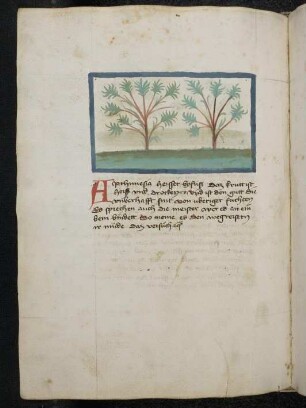 Arthimesia heisset byfuß daz krutt ist
heiß vnd drocken vnd ist den gutt die
vnberhafft sint von vberiger fuchten
So sprechen auch die meister wer es an ein
bein bindett So mag es den wegreisten
nit mude daz versuch ich